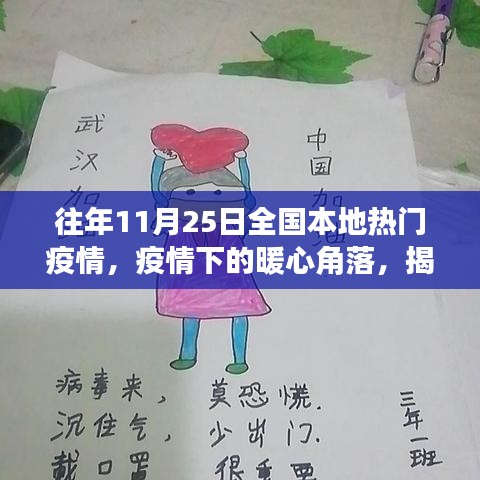 武汉加油
中国加油
往年11月25日全国本地热门
疫情，疫情下的暖心角落，揭
病毒来，莫恐慌.
沉住气，少出门.
戴口罩 很重要
三年一班